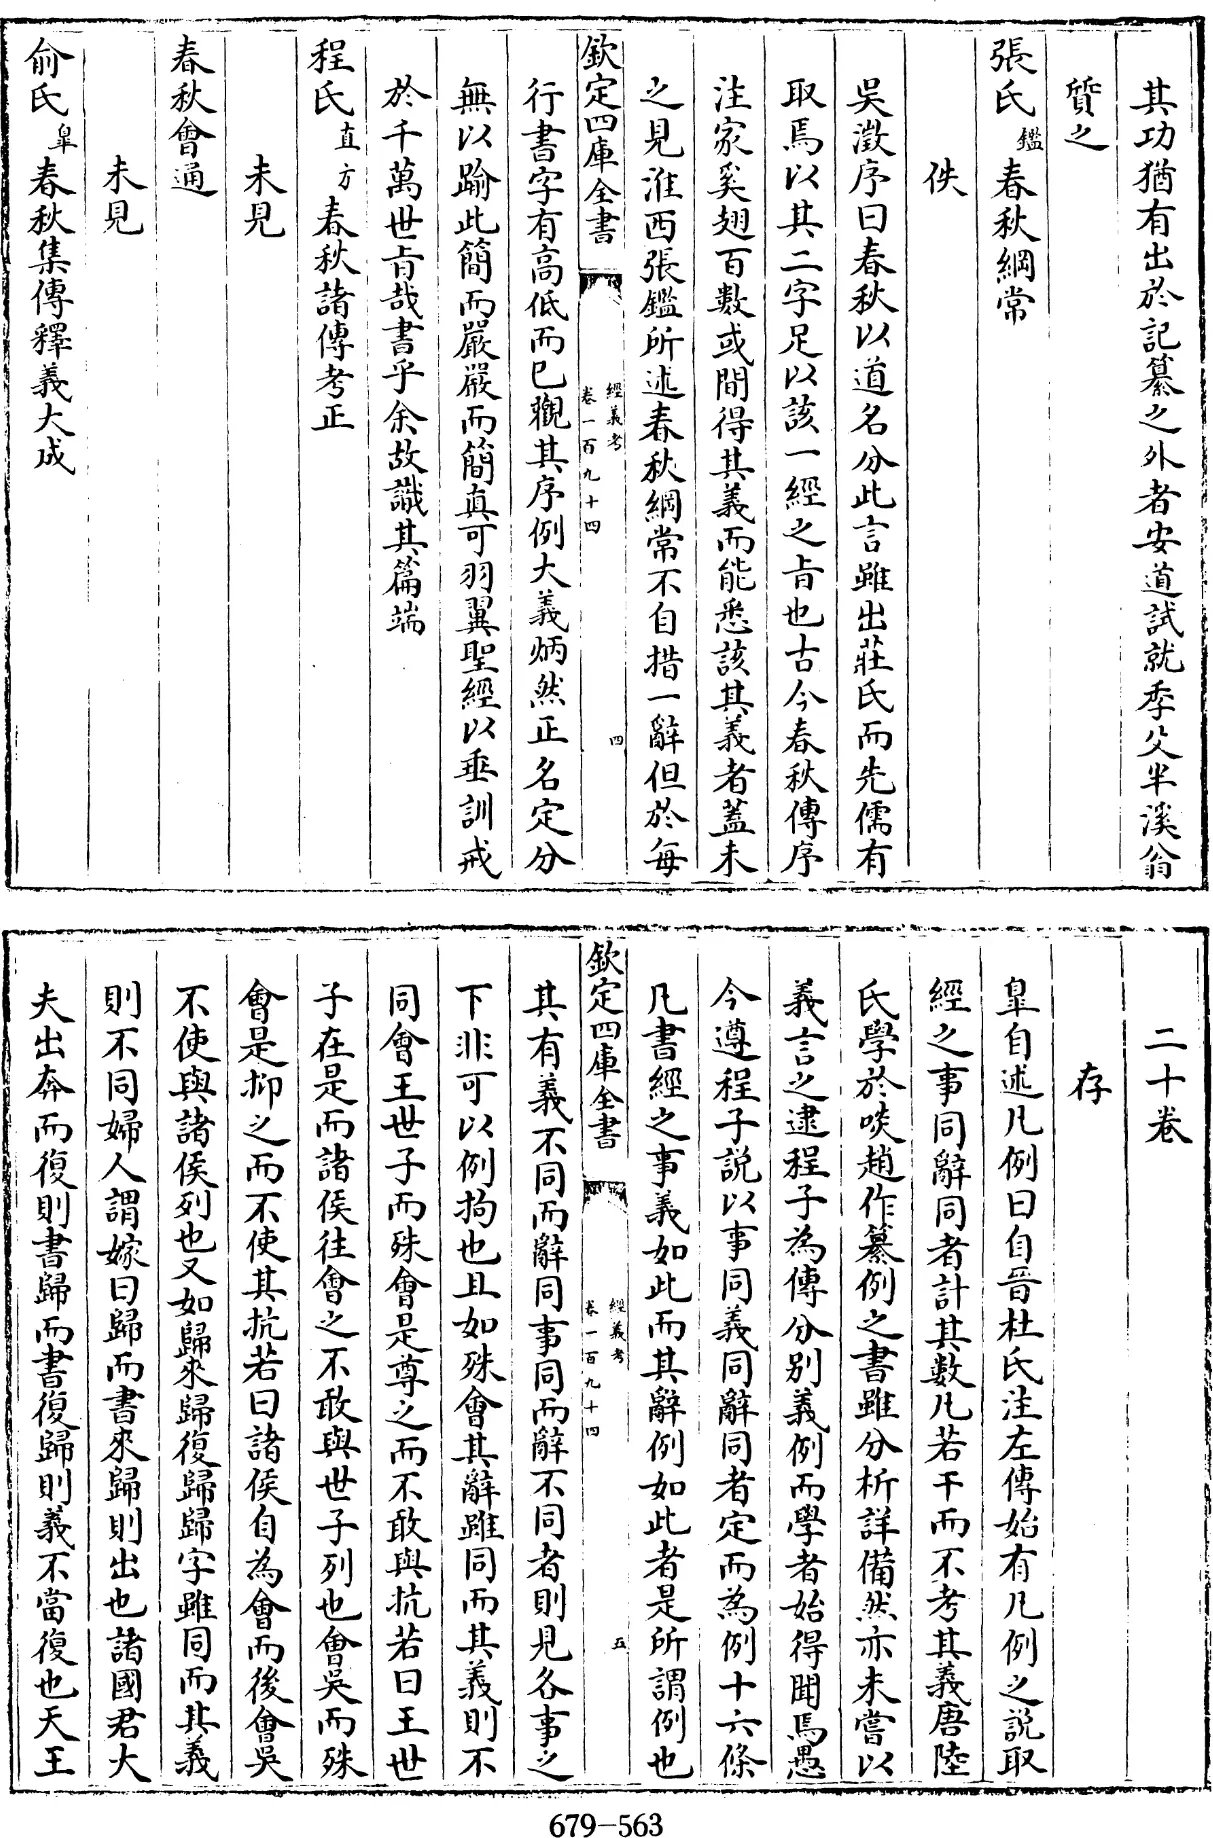 其功猶有出於記纂之外者安道試就季父半溪翁
質之
張氏鑑春秋綱常
佚
吳澂序曰春秋以道名分此言雖出莊氏而先儒有
取焉以其二字足以該一經之旨也古今春秋傳序
注家奚翅百數或間得其義而能悉該其義者蓋未
之見淮西張鑑所述春秋綱常不自措一辭但於每
欽定四庫全書
經義考
卷一百九十四
四
行書字有高低而已觀其序例大義炳然正名定分
無以踰此簡而嚴嚴而簡真可羽翼聖經以垂訓戒
於千萬世旨哉書乎余故識其篇端
程氏直方春秋諸傳考正
未見
春秋會通
未見
俞氏臯春秋集傳釋義大成
二十卷
存
臯自述凡例曰自晉杜氏注左傳始有凡例之說取
經之事同辭同者計其數凡若干而不考其義唐陸
氏學於啖趙作纂例之書雖分析詳備然亦未嘗以
義言之逮程子為傳分別義例而學者始得聞焉愚
今遵程子說以事同義同辭同者定而為例十六條
凡書經之事義如此而其辭例如此者是所謂例也
欽定四庫全書
經義考
卷一百九十四
五
其有義不同而辭同事同而辭不同者則見各事之
下非可以例拘也且如殊會其辭雖同而其義則不
同會王世子而殊會是尊之而不敢與抗若曰王世
子在是而諸侯往會之不敢與世子列也會吳而殊
會是抑之而不使其抗若曰諸侯自為會而後會吳
不使與諸侯列也又如歸來歸復歸歸字雖同而其義
則不同婦人謂嫁曰歸而書來歸則出也諸國君大
夫出奔而復則書歸而書復歸則義不當復也天王
679-563